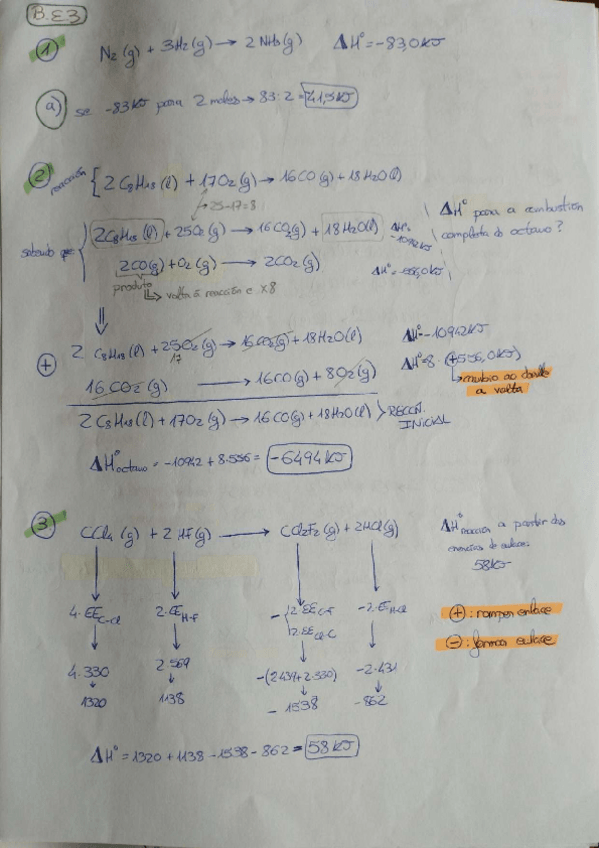 B.E3
1 N2(g) + 3H2(g) → 2 NH3(g) ΔHº = -83,0kJ
a) se -83kJ para 2 moles → 83:2 = 41,5kJ
2 reacción { 2 C8H18(l) + 17O2(g) → 16CO(g) + 18H2O(l)
25-17=8
sabendo que { 2C8H18(l) + 25O2(g) → 16CO2(g) + 18H2O(l) ΔHº = -10942kJ
2CO(g) + O2(g) → 2CO2(g) ΔHº = -556,0kJ
produto
↳ volta á reacción e x8
ΔHº para a combustión
completa do octano?
⇓
+ 2 C8H18(l) + 25O2(g) → 16CO2(g) + 18H2O(l) ΔHº = -10942kJ
17
16 CO2(g) → 16CO(g) + 8O2(g) ΔHº = 8·(+556,0kJ)
↳ cambio ao darlle
a volta
2 C8H18(l) + 17O2(g) → 16CO(g) + 18H2O(l) > RECCÑ.
INICIAL
ΔHº octano = -10942 + 8·556 = -6494kJ
3 CCl4(g) + 2 HF(g) → CCl2F2(g) + 2HCl(g)
ΔHº reacción a partir das
enerxías de enlace:
58kJ
4·EE C-Cl 2·EE H-F -{ 2·EE C-F -2·EE H-Cl
2·EE Cl-C
+ : rompen enlace
- : forman enlace
4·330 2·569 -(2·439+2·330) -2·431
1320 1138 -1538 -862
ΔHº = 1320 + 1138 - 1538 - 862 = 58kJ